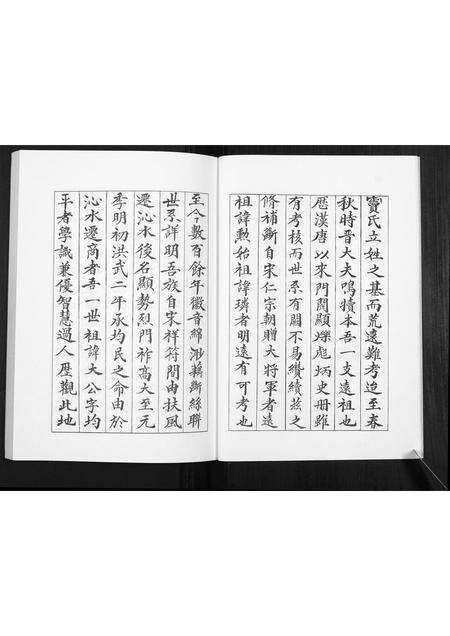 竇氏立姓之基而荒遠難考迨至春
秋時晋大夫鳴犢本吾一支遠祖也
歷漢唐以來門閥顯爍彪炳史冊雖
有考核而世系有闕不易纘續茲之
脩補斷自宋仁宗朝贈大將軍者遠
祖諱勲始祖諱璘者明遠有可考也
至今數百餘年徽音綿渺藕斷絲聯
世系詳明吾族自宋祥符間由扶風
遷沁水後名顯勢烈門祚高大至元
季明初洪武二年承均民之命由於
沁水遷商者吾一世祖諱大公字均
平者學識兼優智慧過人歷觀此地